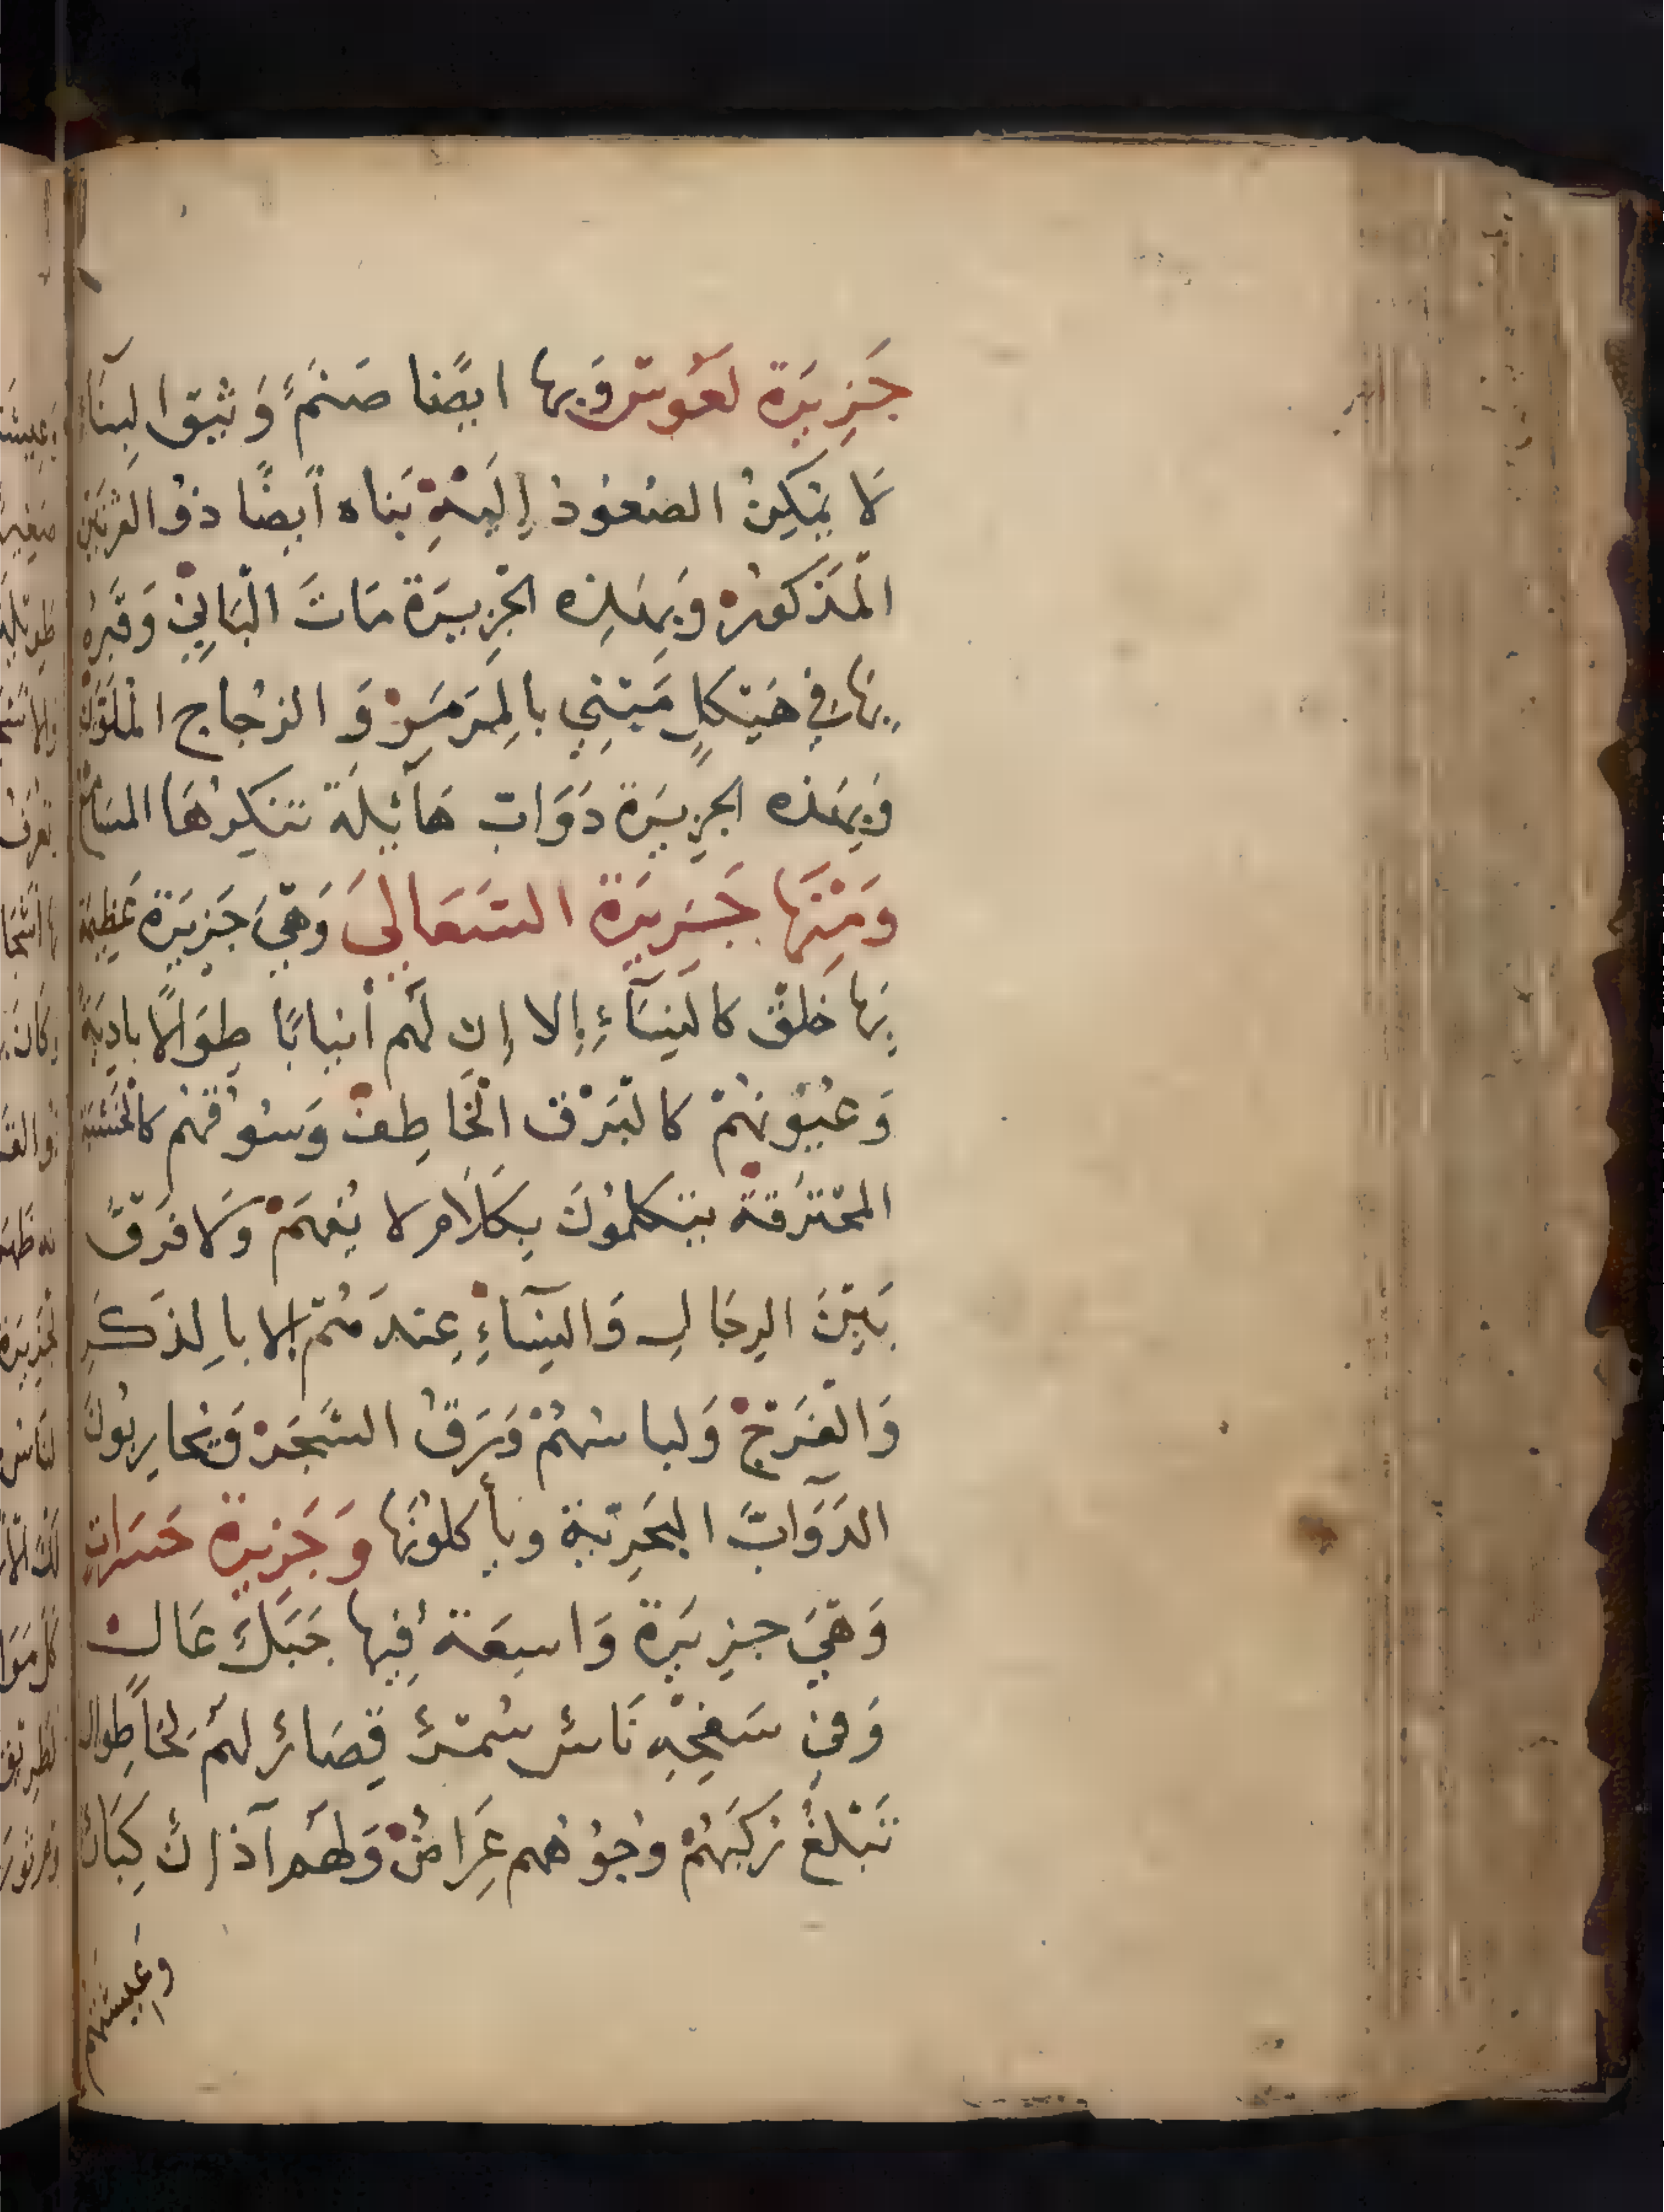 جَزِيرَة لعَوس وَبها ايضًا صَنَمٌ وَثيق البنَآء
لَا يُمكِنُ الصُعُودُ إِليهِ بَناه أيضًا ذوُ القرنَين
المَذكورْ وَبِهذِه الجزِيرَة مَاتَ البَانِيْ وَقَبرُه
بهَا في هَيْكلٍ مَبْني بالمَرمَرْ وَ الزجاج المُلَوَّن
وَبِهذه الجزِيرَة دَوَابّ هَآئِلَة تنكرُهَا المسَامع
وَمِنْهَا جَزِيرَة السَعَالِى وَهيَ جَزِيرَة عَظِيمَة
بِهَا خَلقٌ كالنِسَآءِ إلا إن لَهم أنيابًا طِوَالًا بادِيَةً
وَعُيُونهُمْ كالبَرْق الخَاطِفْ وَسُوقهُم كالخَشبَة
المحْترقَة يتكلمُونَ بِكَلَام لا يُفهَمْ وَلَا فَرقَ
بَيْنَ الرِجَالِ وَالنِسَآءِ عِندَهُمْ إلا بالِذَكَرِ
وَالفَرجْ وَلباسُهُمْ وَرَقُ الشَجَرْ وَيُحارِبُونَ
الدَوَآبَّ البَحرِيّة ويأكلونَها وَجَزِيرة حَسَرات
وَهيَ جزِيرَة وَاسِعَة فِيها جَبَلٌ عَال
وَفي سَفحِهِ نَاسٌ سُمْرٌ قِصَارٌ لهُم لِحًا طِوال
تَبْلغُ رُكَبَهُمْ وجُوهُهم عِرَاضٌ وَلهَم آذانٌ كِبَارٌ
وَعِيشتهُم